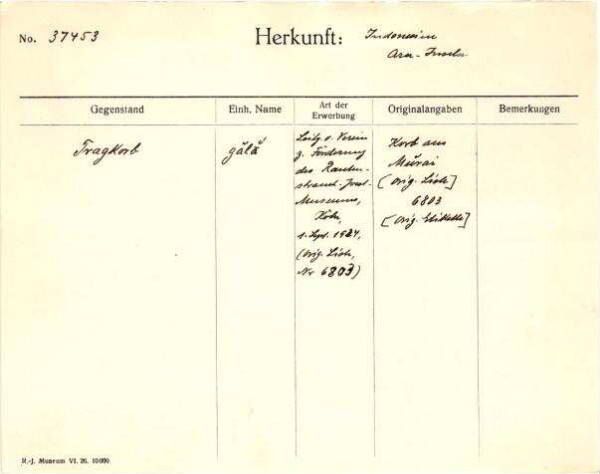 No. 37453 Herkunft: Indonesien
Aru-Inseln
Gegenstand Einh. Name Art der Erwerbung Originalangaben Bemerkungen
Tragkorb
gălă
Leihg. d. Verein
z. Förderung
des Rauten-
strauch-Joest-
Museums,
Köln,
1. Sept. 1924,
(Orig. Liste,
Nr 6803)
Korb aus
Mŭrai
[Orig. Liste]
6803
[Orig. Etikette]
R.-J. Museum VI. 26. 10000.